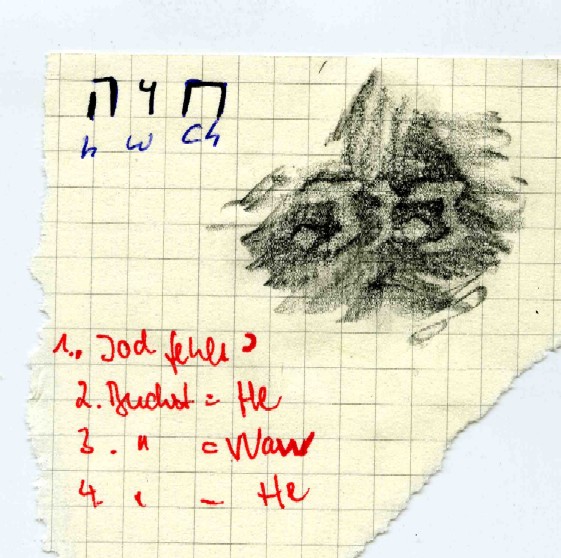 h w Ch
1., Jod fehlt ?
2. Buchst = He
3. " = Waw
4. " – He